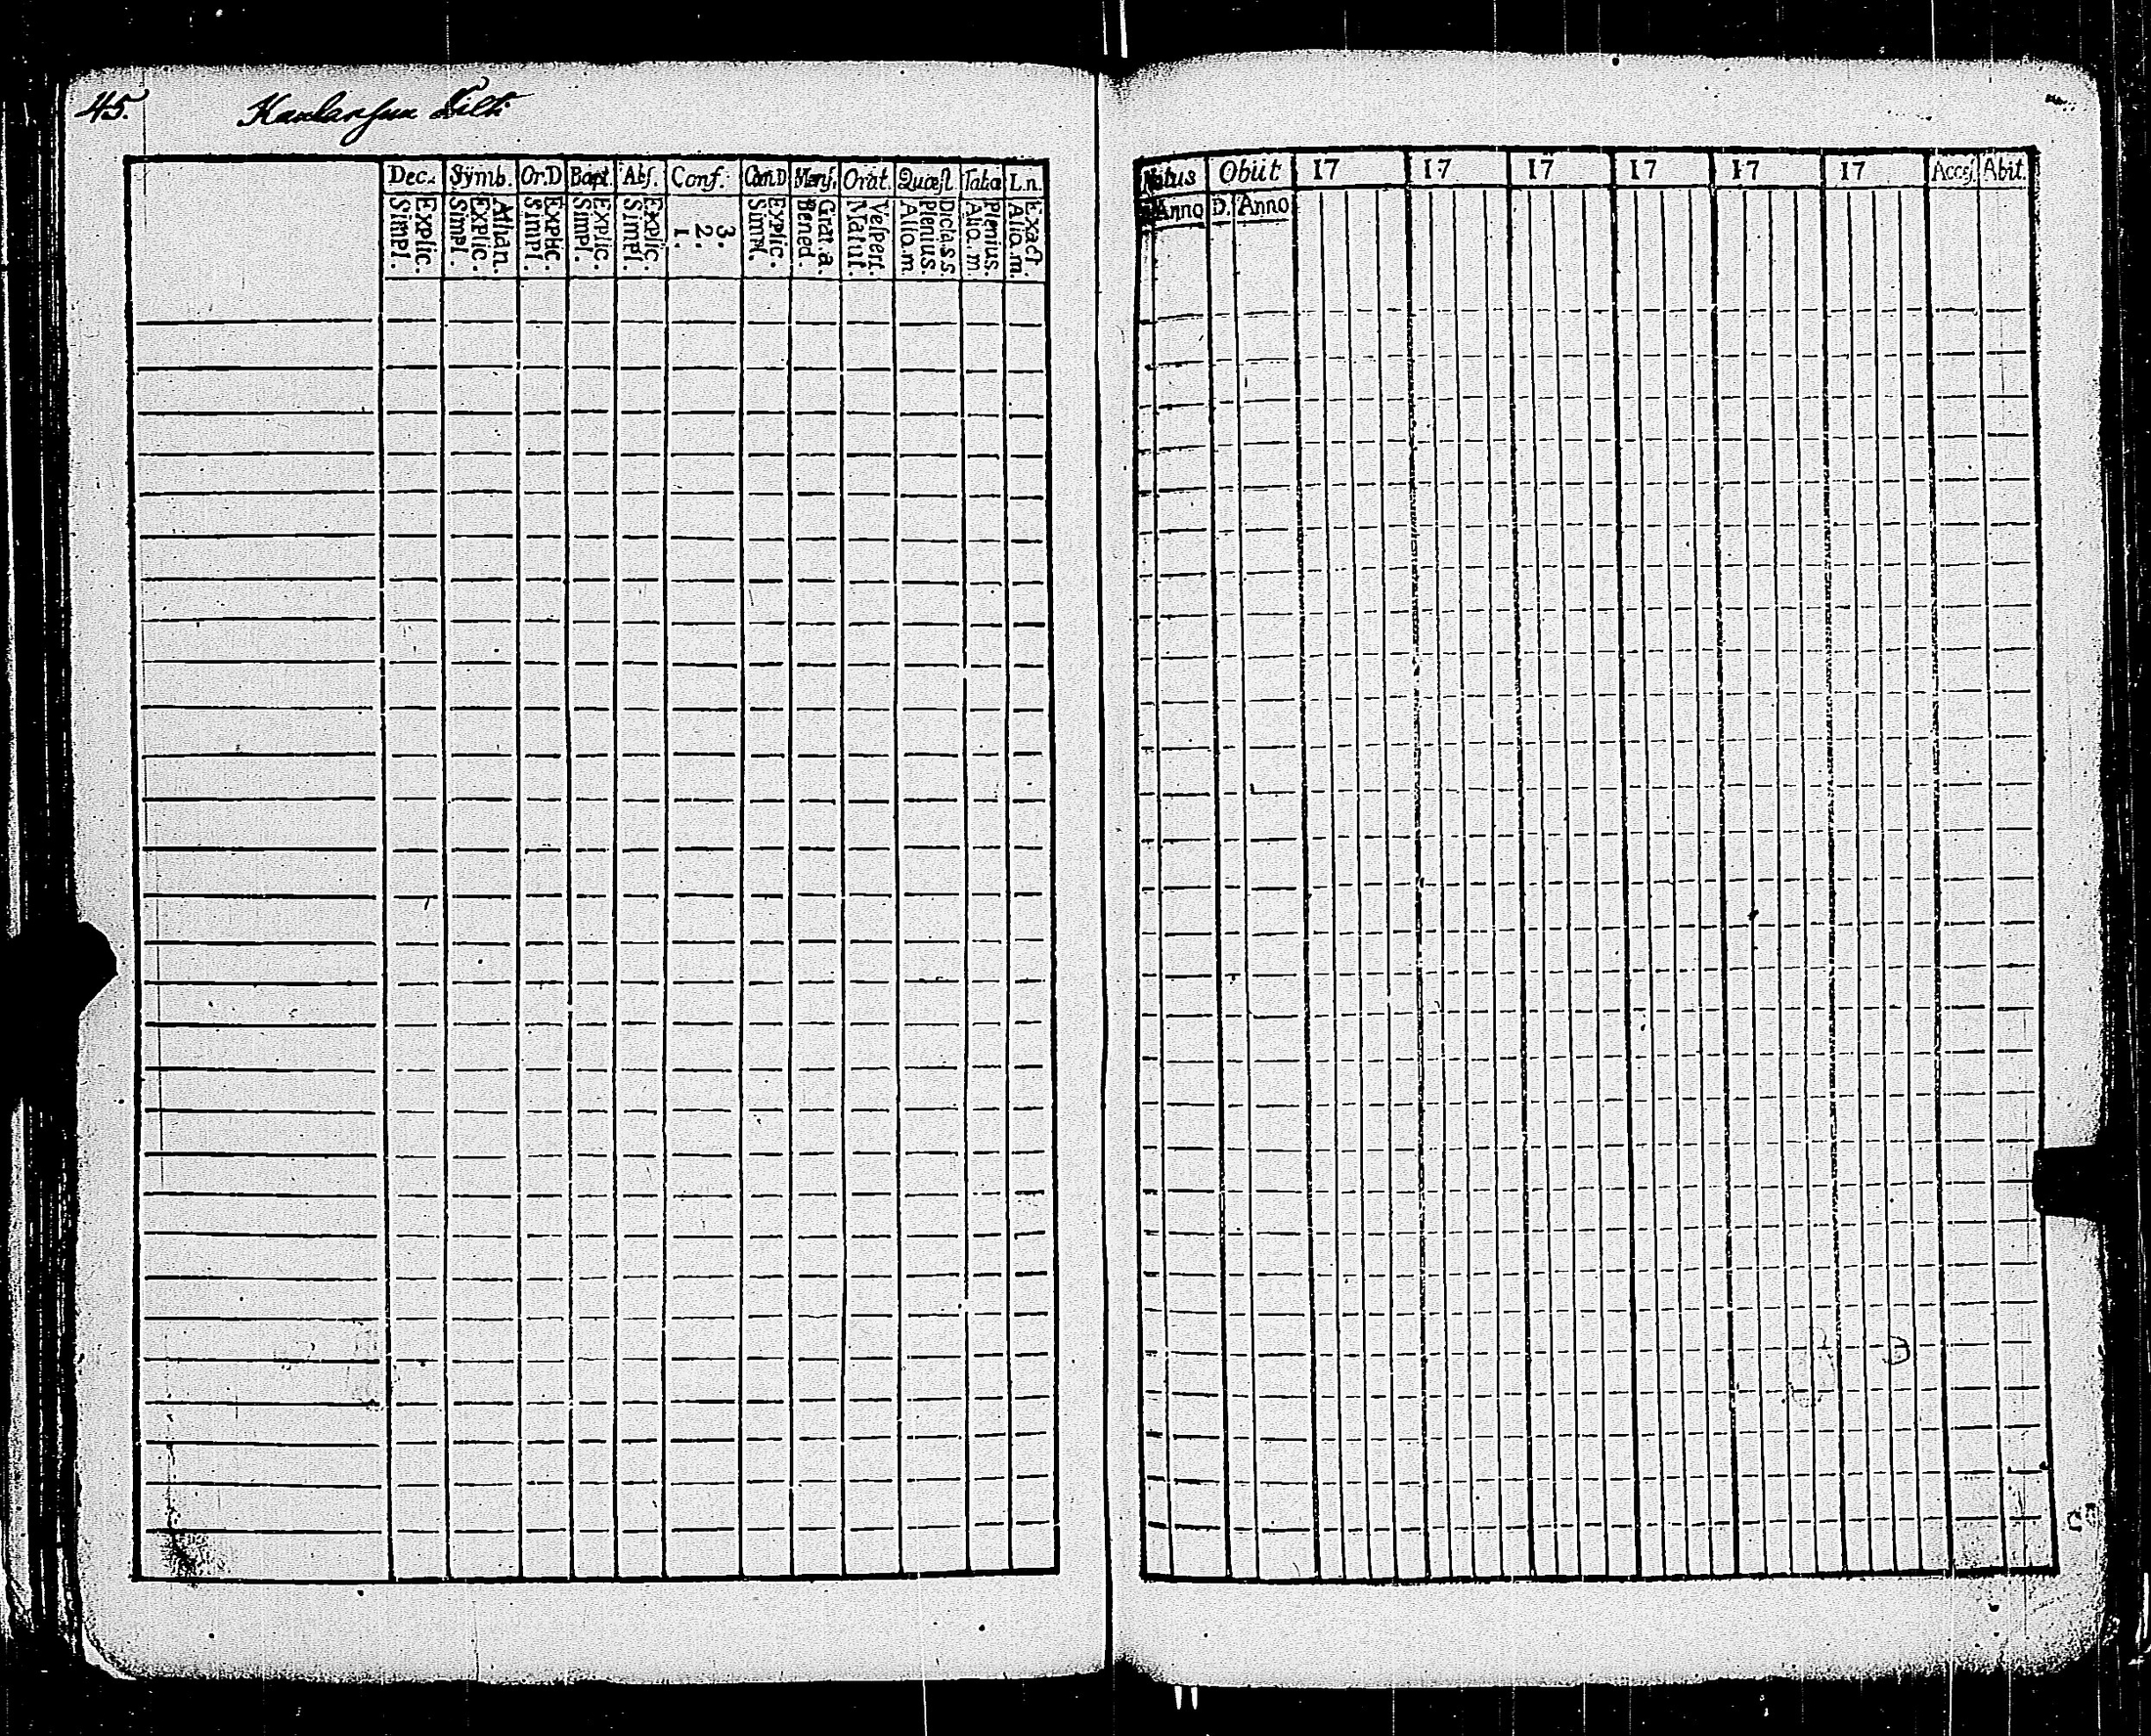 45.
Dec. Symb. Or.D Bapt. Abs. Conf. Cœn.D Mens. Orat. Quæst. Tab.œ L.n.
Simpl. Explic. Simpl. Explic. Athan. Simpl. Explic. Simpl. Explic. Simpl. Explic. 1. 2. 3. Simpl. Explic. Bened. Grat.a. Matut. Vesperi. Alio.m. Plenius. Dicta.s.s. Alio.m. Plenius. Alio.m. Exact.
Natus Obiit 17 17 17 17 17 17 Acces. Abit.
Anno D. Anno